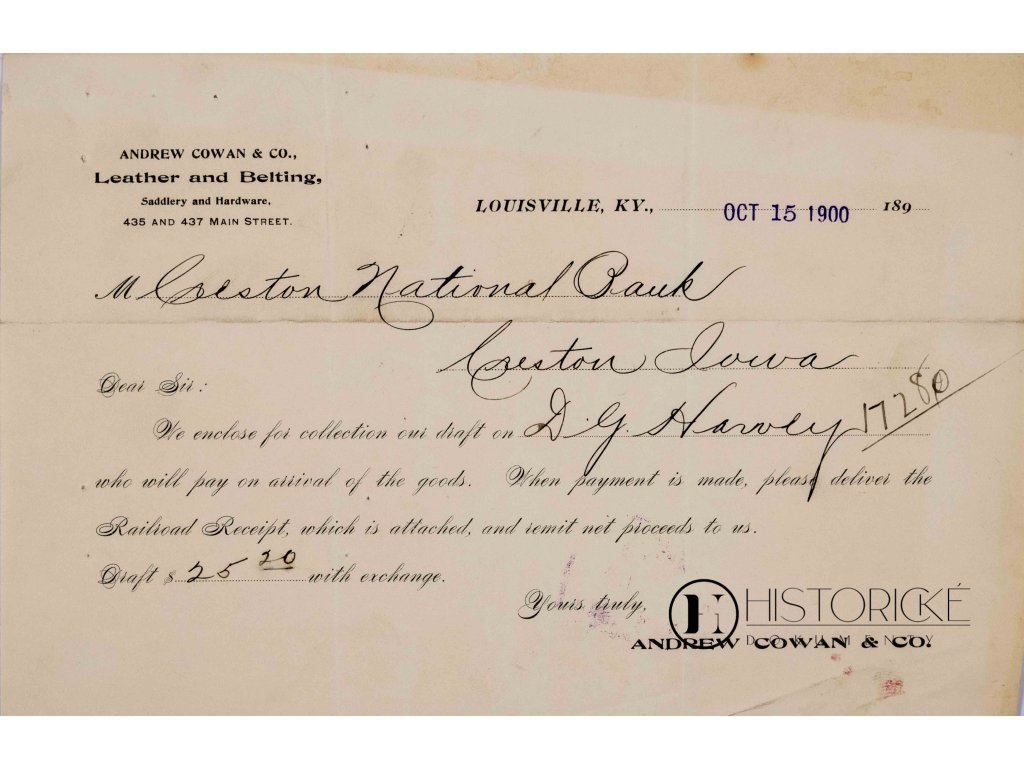 ANDREW COWAN & CO.,
Leather and Belting,
Saddlery and Hardware,
435 AND 437 MAIN STREET.
LOUISVILLE, KY., OCT 15 1900 189
M Creston National Bank
Creston Iowa
Dear Sir:
We enclose for collection our draft on D. G. Harvey 17280
who will pay on arrival of the goods. When payment is made, please deliver the
Railroad Receipt, which is attached, and remit net proceeds to us.
Draft $ 25 20 with exchange.
Yours truly,
HISTORICKÉ
DOKUMENTY
ANDREW COWAN & CO.